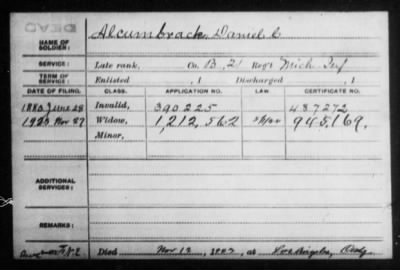 DEAD
NAME OF SOLDIER: Alcumbrack, Daniel C
SERVICE: Late rank, Co. B, 21 Reg't Mich Inf
TERM OF SERVICE: Enlisted , 1 Discharged , 1
DATE OF FILING. CLASS. APPLICATION NO. LAW CERTIFICATE NO.
1880 June 28 Invalid, 390225 487272
1923 Nov 27 Widow, 1,212,562 945,169.
Minor,
ADDITIONAL SERVICES:
REMARKS:
Died Nov 13, at Los Angeles, Calif.